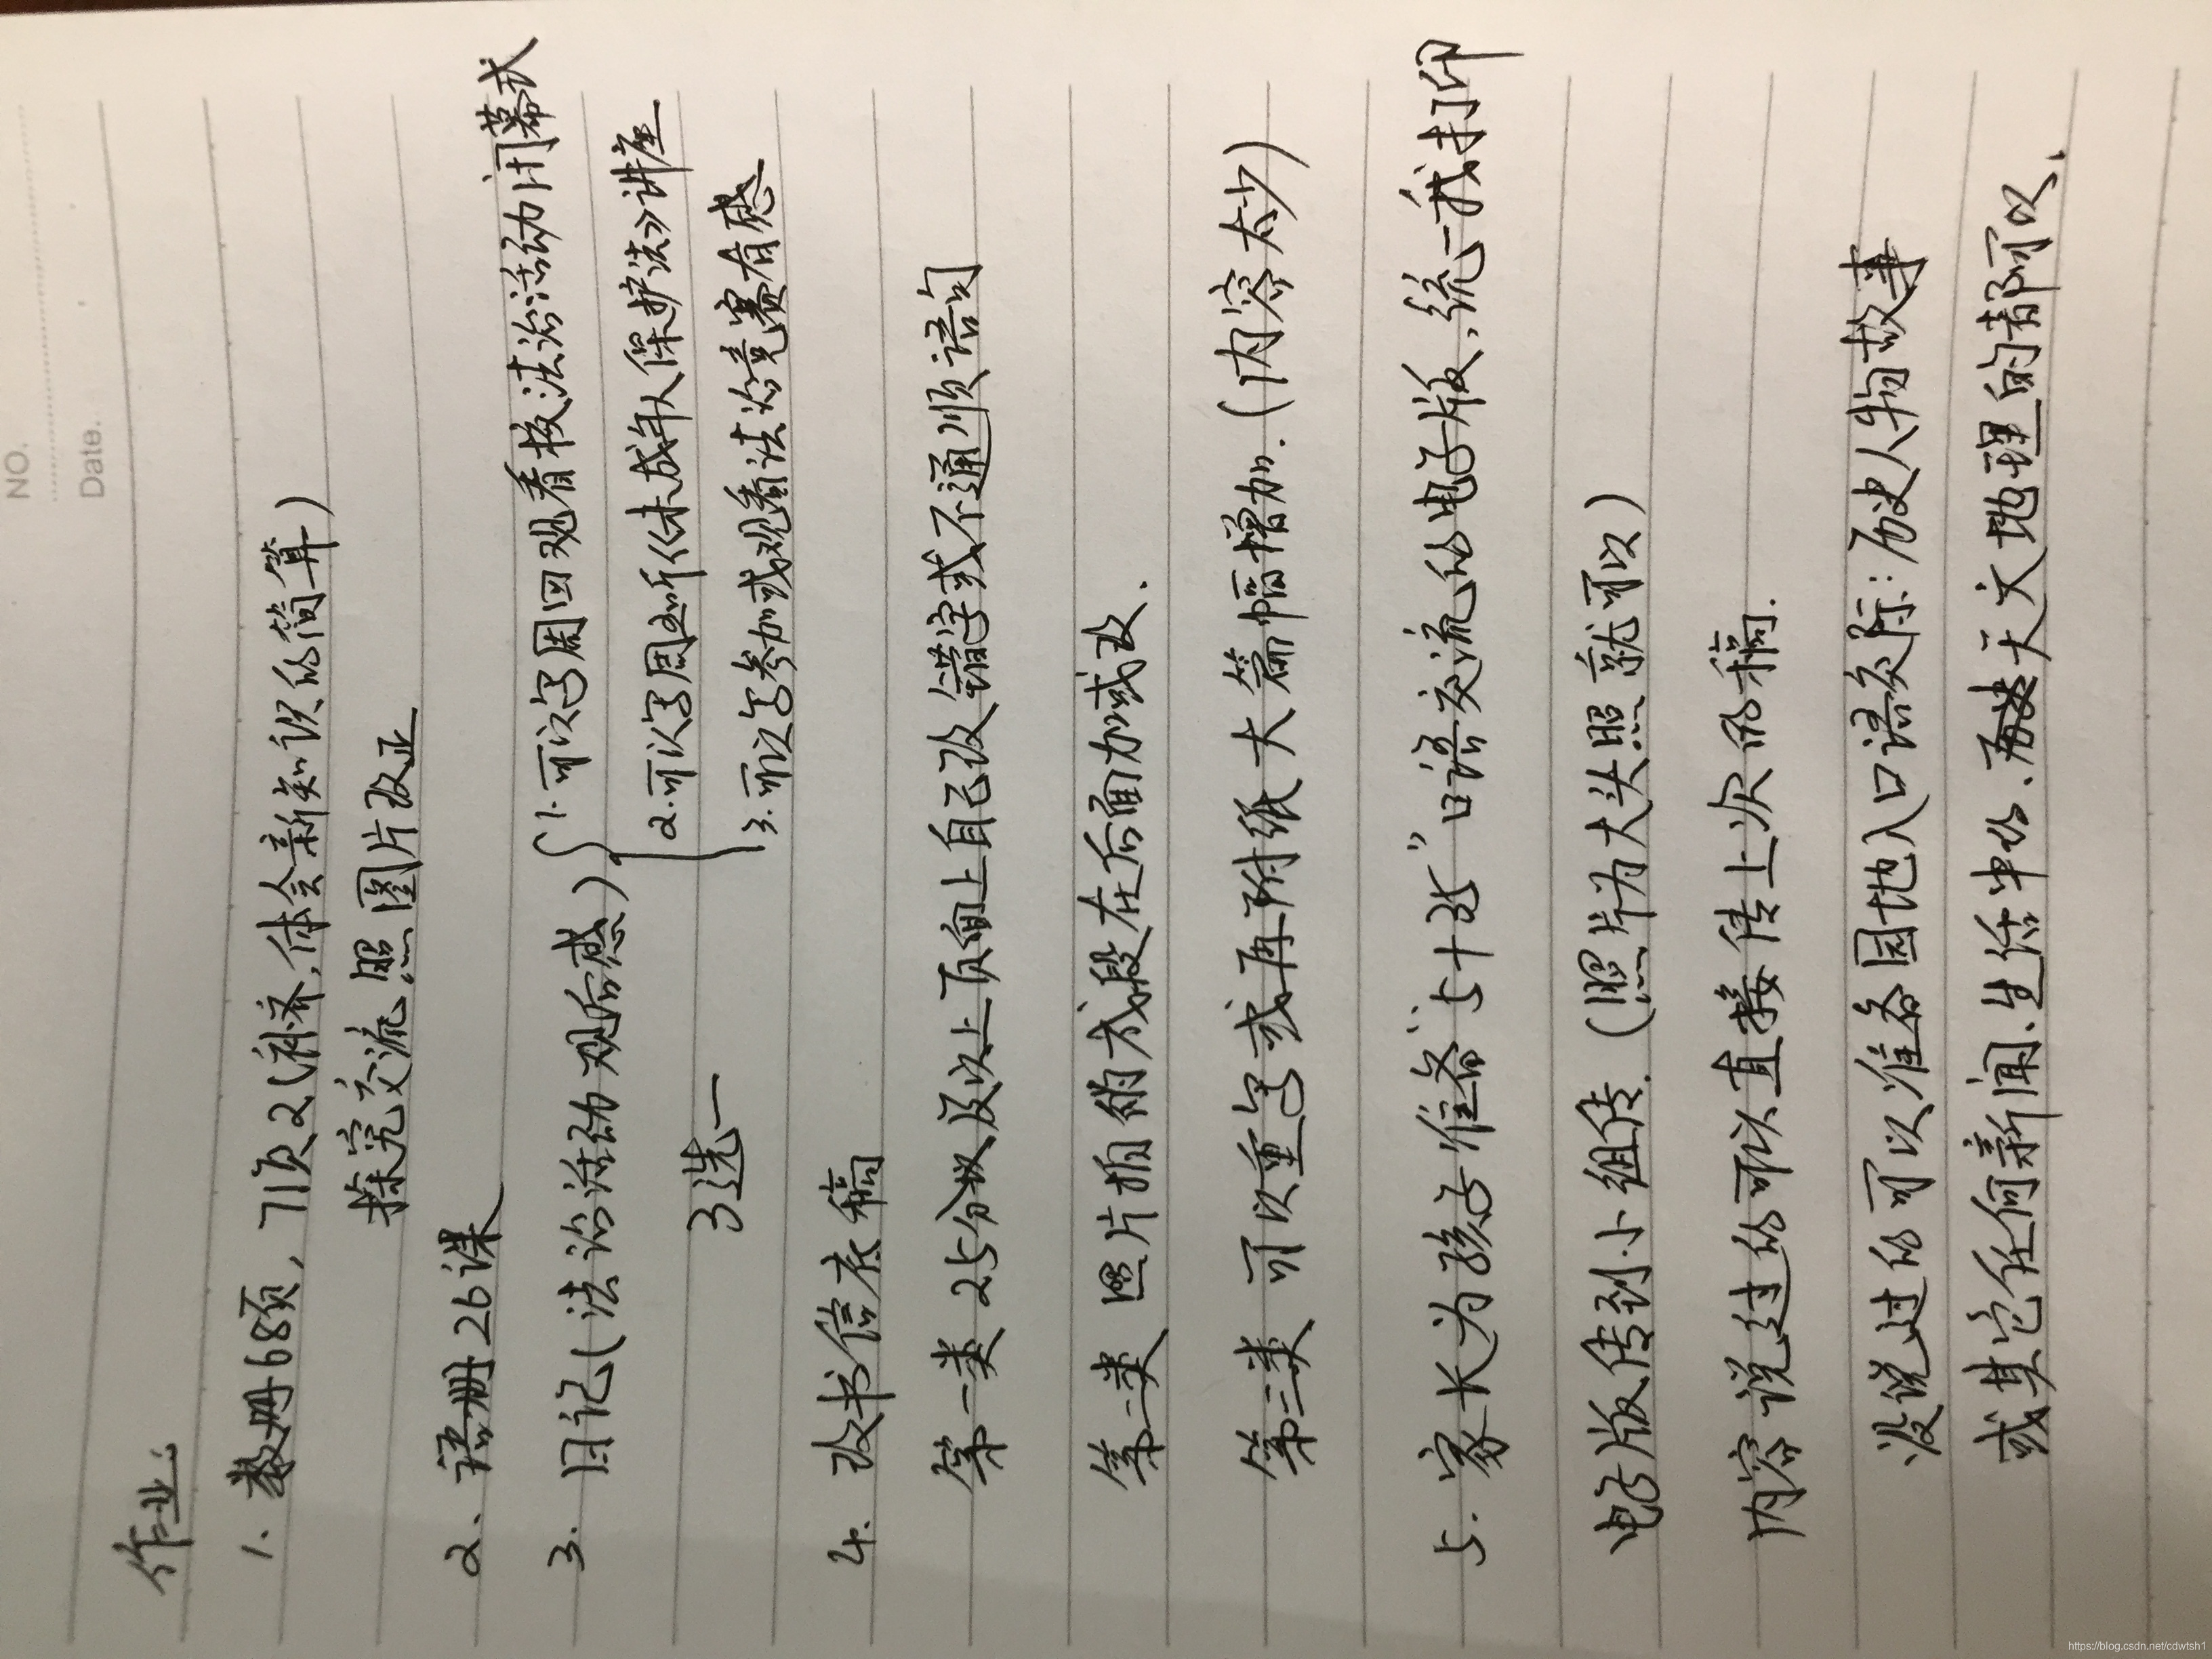 NO.
Date.
作业:
1. 数册68页, 71页2(补齐,体会新知识的简算)
探究交流,照图片改正
2、语册26课
3. 日记(法治活动观后感) 1.可以写周四观看校法治活动闭幕式
2.可以写周五听《未成年人保护法》讲座
3选一 3.可以写参加或观看法治竞赛有感
4. 改书信底稿
第一类 25分以及以上页面上自己改错字或不通顺语句
第二类 照片拍的或段在后面加或改.
第三类 可以重写或再附纸大篇幅增加.(内容太少)
5. 家长为孩子准备“5+25”口语交流的电子版,统一我打印
电子版传到小组传.(照片为大头照就可以)
内容说过的可以直接传上次的稿.
没说过的可以准备园地八口语交际:历史人物故事
或其它任何新闻、生活中的、天文地理的都可以、
https://blog.csdn.net/cdwtsh1